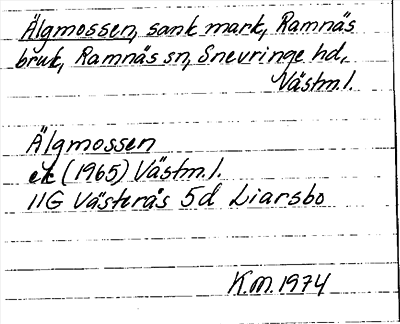 Älgmossen, sank mark, Ramnäs
bruk, Ramnäs sn, Snevringe hd,
Västm.l.
Älgmossen
ek (1965) Västm.l.
11G Västerås 5d Liarsbo
K.M. 1974